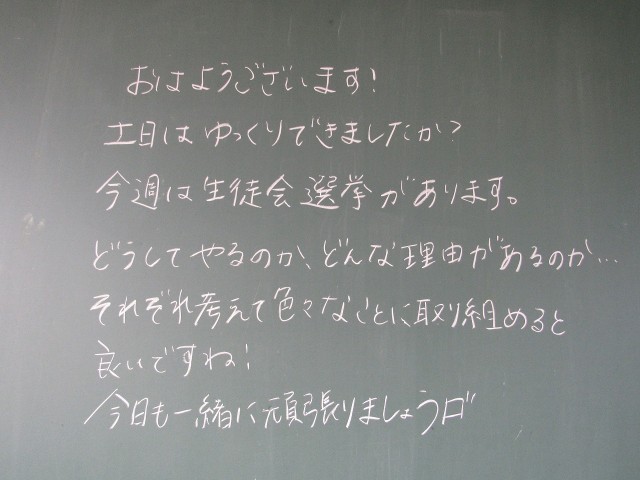 おはようございます!
土日はゆっくりできましたか?
今週は生徒会選挙があります。
どうしてやるのか、どんな理由があるのか…
それぞれ考えて色々なことに取り組めると
良いですね!
今日も一緒に頑張りましょう